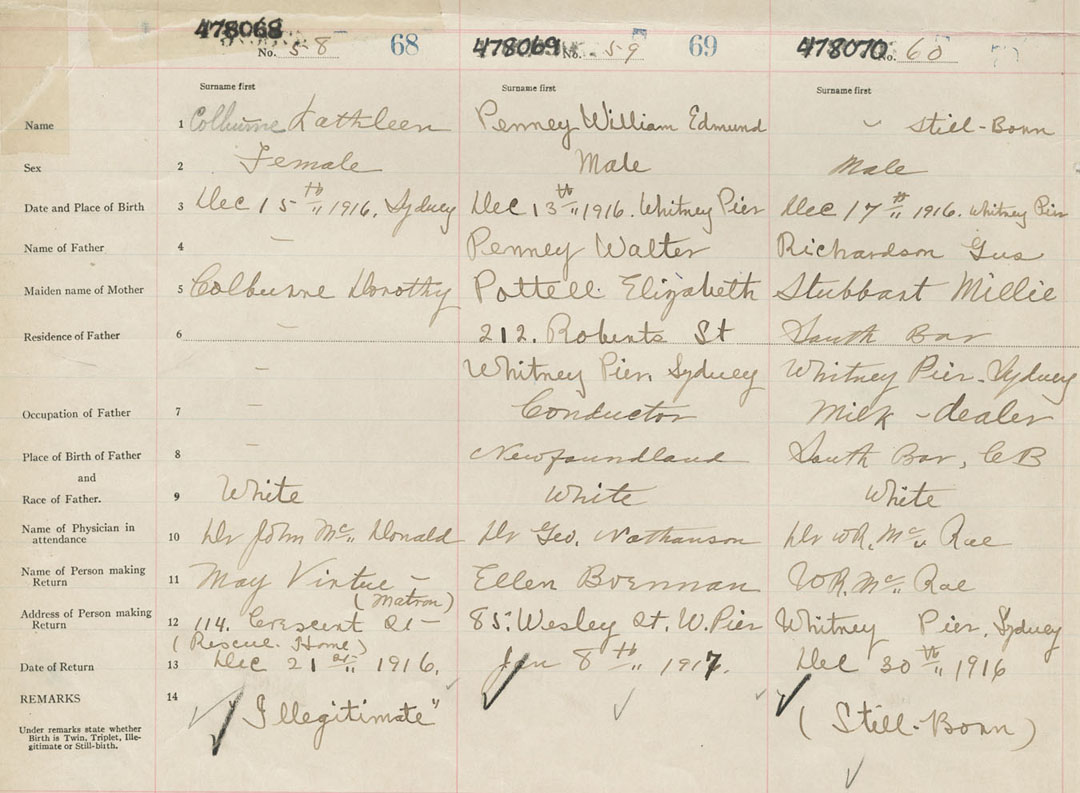 478068 478069 478070
No. 58 68 No. 59 69 No. 60
Surname first Surname first Surname first
Name 1 Colburne Kathleen Penney William Edmund " Still-Born
Sex 2 Female Male Male
Date and Place of Birth 3 Dec 15th " 1916. Sydney Dec 13th " 1916. Whitney Pier Dec 17th " 1916. Whitney Pier
Name of Father 4 — Penney Walter Richardson Gus
Maiden name of Mother 5 Colburne Dorothy Pottell Elizabeth Stubbart Millie
Residence of Father 6 — 212. Roberts St South Bar
— Whitney Pier, Sydney Whitney Pier - Sydney
Occupation of Father 7 — Conductor Milk - dealer
Place of Birth of Father 8 — Newfoundland South Bar, CB
and
Race of Father. 9 White White White
Name of Physician in
attendance 10 Dr John Mc" Donald Dr Geo. Nathanson Dr W.R. Mc" Rae
Name of Person making
Return 11 May Virtue - Ellen Brennan W.R. Mc" Rae
(Matron)
Address of Person making
Return 12 114. Crescent St - 85: Wesley St. W. Pier Whitney Pier, Sydney
(Rescue-Home)
Date of Return 13 Dec 21st " 1916. Jan 8th " 1917. Dec 30th " 1916
REMARKS 14 "Illegitimate" (Still-Born)
Under remarks state whether
Birth is Twin, Triplet, Ille-
gitimate or Still-birth.